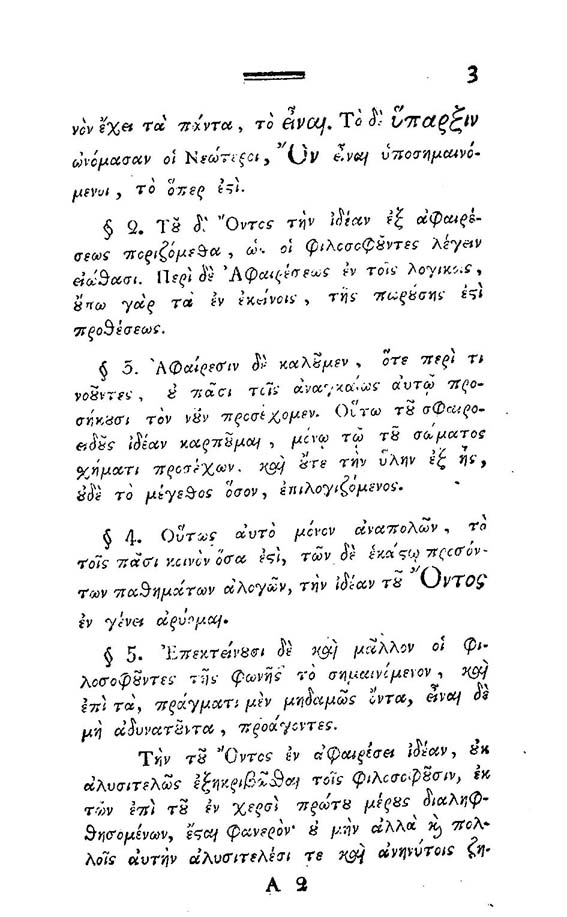 3
νὸν ἔχει τὰ πάντα, τὸ εἶναι. Τὸ δὲ ὕπαρξιν
ὠνόμασαν οἱ Νεώτεροι, Ὂν εἶναι ὑποσημαινό-
μενοι, τὸ ὅπερ ἐϛί.
§ 2. Τȣ͂ δὲ Ὄντος τὴν ἰδέαν ἐξ ἀφαιρέ-
σεως ποριζόμεθα, ὡς οἱ φιλοσοφȣ͂ντες λέγειν
εἰώθασι. Περὶ δὲ Ἀφαιρέσεως ἐν τοῖς λογικοῖς,
ȣ̓́πω γὰρ τὰ ἐν ἐκείνοις, τῆς παρȣ́σης ἐϛὶ
προθέσεως.
§ 3. Ἀφαίρεσιν δὲ καλȣ͂μεν, ὅτε περὶ τι
νοȣ͂ντες, ȣ̓ πᾶσι τοῖς ἀναγκαίως αὐτῷ προ-
σήκȣσι τὸν νȣ͂ν προσέχομεν. Οὕτω τȣ͂ σφαιρο-
ειδȣ͂ς ἰδέαν καρπȣ͂μαι, μόνῳ τῷ τȣ͂ σώματος
χήματι προσέχων. καὶ ȣ̓́τε τὴν ὕλην ἐξ ἧς,
ȣ̓δὲ τὸ μέγεθος ὅσον, ἐπιλογιζόμενος.
§ 4. Οὕτως αὐτὸ μόνον ἀναπολῶν, τὸ
τοῖς πᾶσι κοινὸν ὅσα ἐϛὶ, τῶν δὲ ἑκάϛῳ προσόν-
των παθημάτων ἀλογῶν, τὴν ἰδέαν τȣ͂ Ὄντος
ἐν γένει ἀρύομαι.
§ 5. Ἐπεκτείνȣσι δὲ καὶ μᾶλλον οἱ φι-
λοσοφȣ͂ντες τῆς φωνῆς τὸ σημαινόμενον, καὶ
ἐπὶ τὰ, πράγματι μὲν μηδαμῶς ὄντα, εἶναι δὲ
μὴ ἀδυνατȣ͂ντα, προάγοντες.
Τὴν τȣ͂ Ὄντος ἐν ἀφαιρέσει ἰδέαν, ȣ̓κ
ἀλυσιτελῶς ἐξηκριβῶσθαι τοῖς φιλοσοφȣ͂σιν, ἐκ
τῶν ἐπὶ τȣ͂ ἐν χερσὶ πρώτȣ μέρȣς διαληφ-
θησομένων, ἔϛαι φανερόν· ȣ̓ μὴν ἀλλὰ ϗ̀ πολ-
λοῖς αὐτὴν ἀλυσιτελέσι τε καὶ ἀνηνύτοις ζη-
A 2